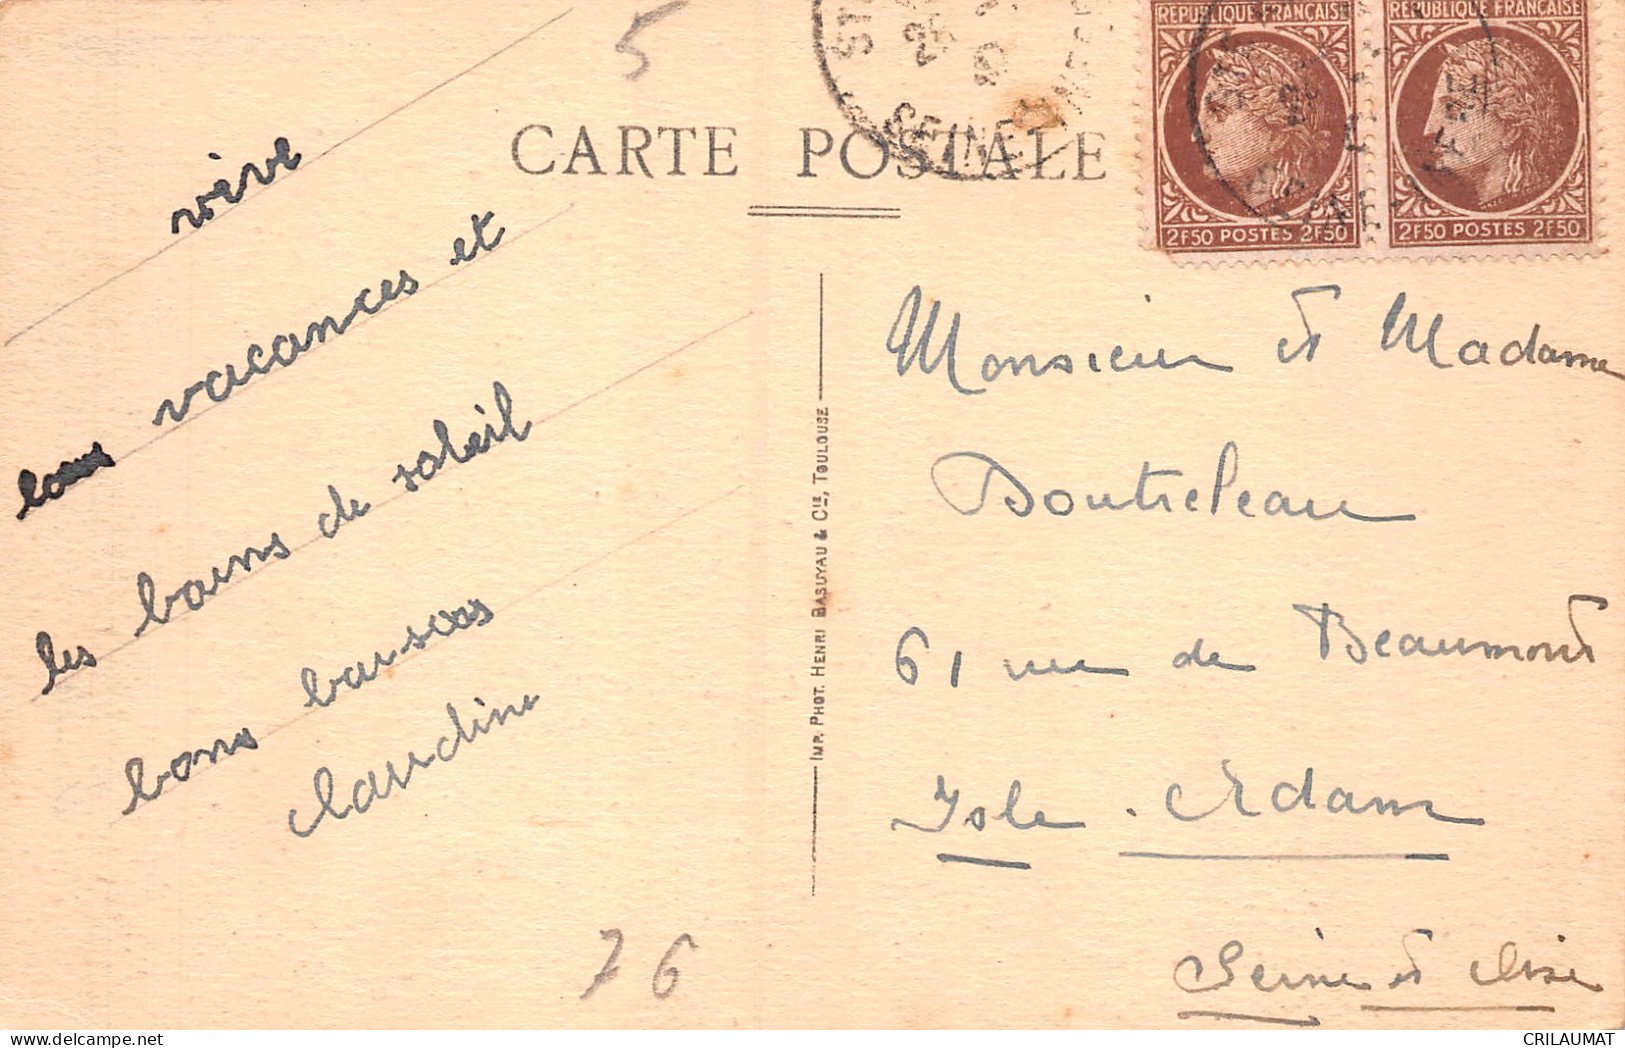 5
CARTE POSTALE
RÉPUBLIQUE FRANÇAISE
2F50 POSTES 2F50
RÉPUBLIQUE FRANÇAISE
2F50 POSTES 2F50
SEINE
vive
les vacances et
les bains de soleil
bons baisers
claudine
IMP. PHOT. HENRI BASUYAU & CIE, TOULOUSE
Monsieur et Madame
Boutreleau
61 rue de Beaumont
Isle-Adam
Seine et Oise
76
CRILAUMAT